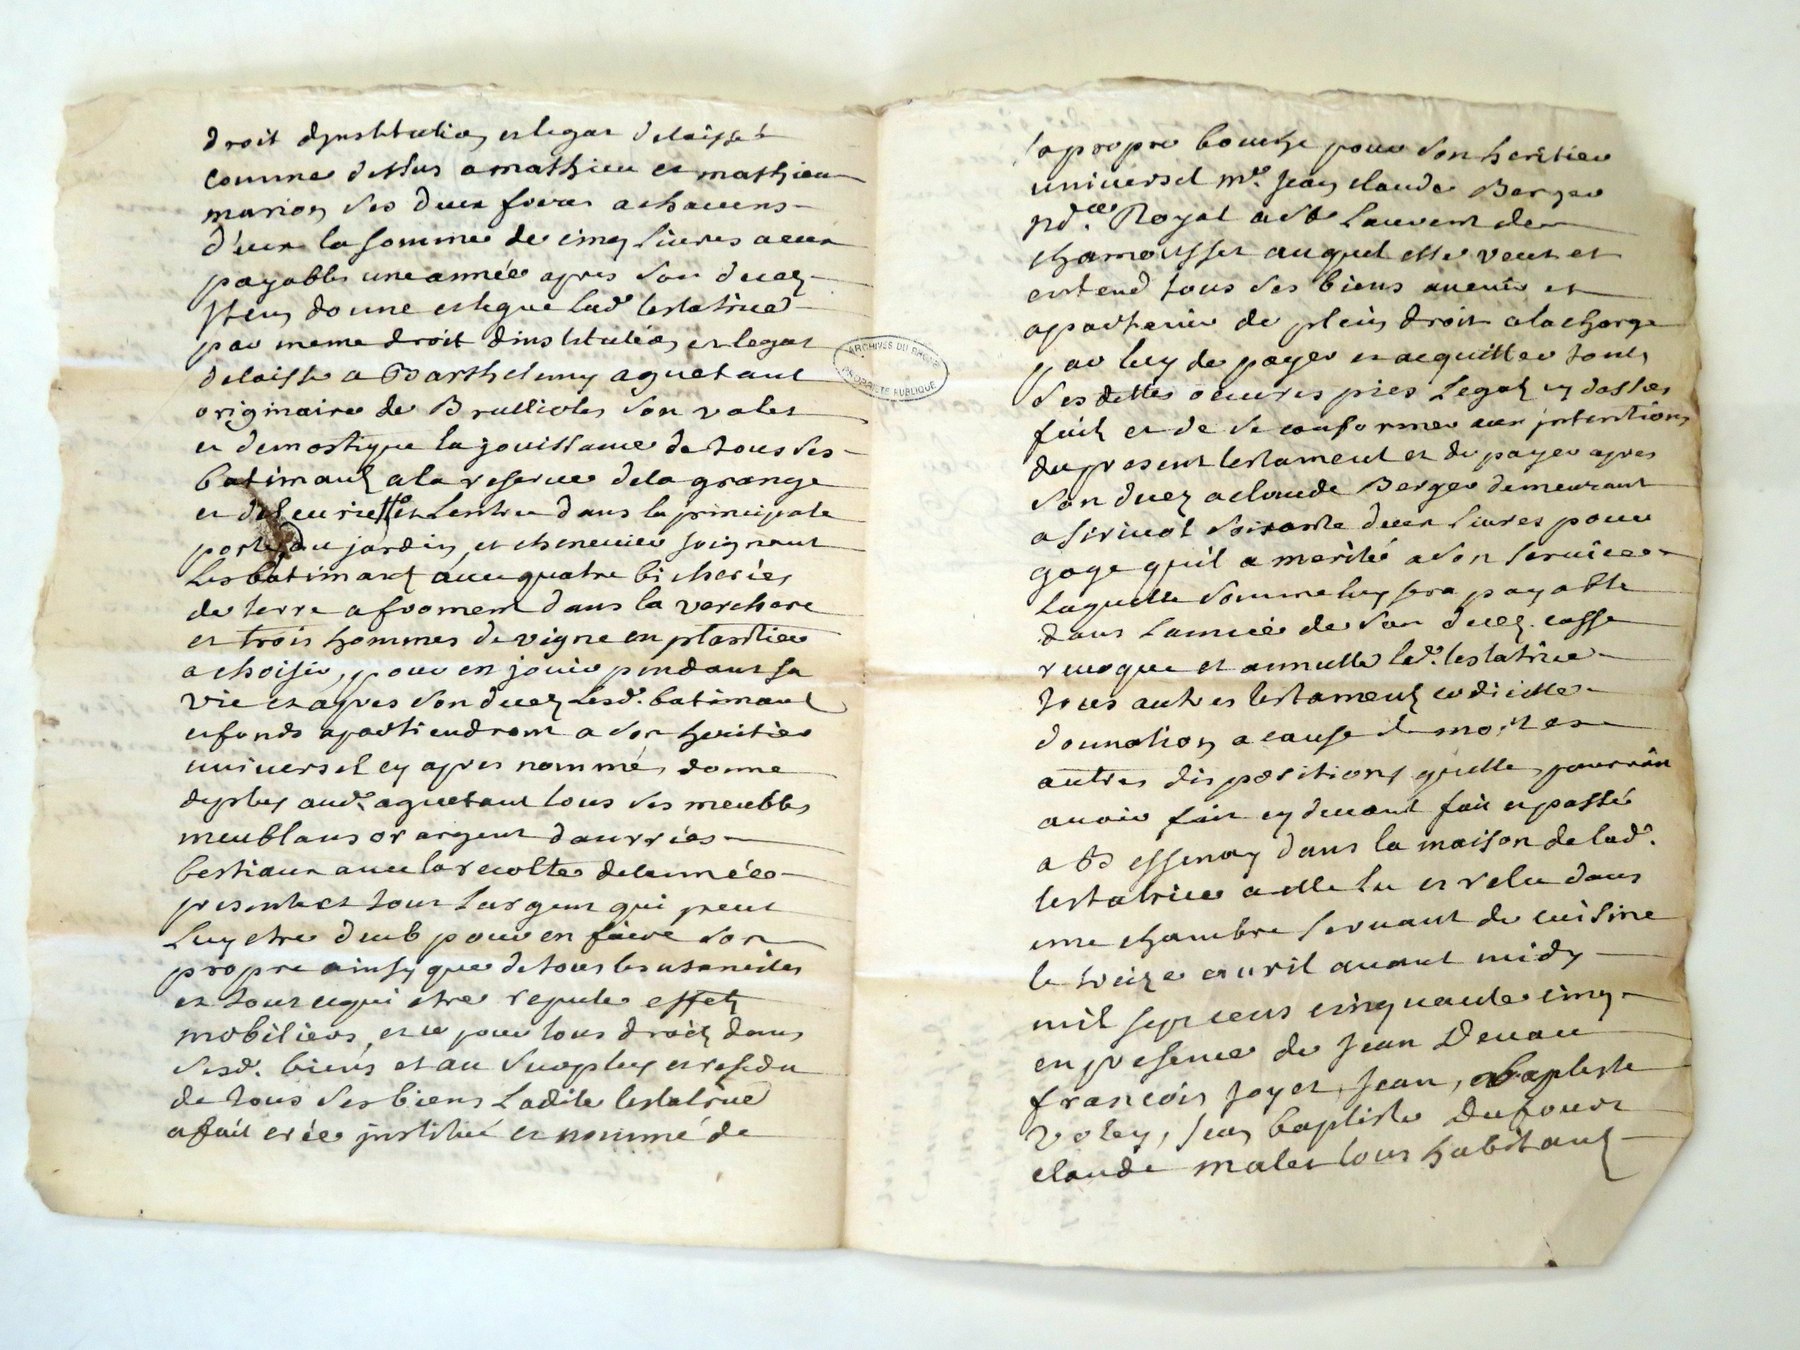 droit dynstitution et legat delaissé
comme dessus a mathieu et mathieu
marion ses deux freres a chacuns
d'eux la somme de cinq livres a eux
payables une année apres son decez
Item donne et legue lad. testatrice
par meme droit dinstitution et legat
delaisse a Barthelemy aguetant
originaire de Brullioles son valet
et demostique la jouissance de tous ses
batimants a la reserve de la grange
et et lentrée dans la principale
porte au jardin, et chenevier joignant
Les batimant avec quatre bicherées
de terre a froment dans la verchere
et trois hommes de vigne en plantier
a choisir, pour en jouir pendant sa
vie et apres son decez Lesd. batimant
et fonds apartiendront a son heritier
universel cy apres nommé, donne
deplus aud. aguetant tous ses meubles
meublans or argent danrrées
bestiaux avec la recolte de lennée
presente et tout largent qui peut
Luy etre deub pour en faire son
propre ainsy que de tous les utancilles
et tout cequi etre repute effets
mobiliers, et ce pour tous droits dans
sesd. biens et au surplus et residu
de tous ses biens Ladite testatrice
a fait crée institué et nommé de
sa propre bouche pour son heritier
universel me. Jean claude Berger
Royal a St Laurent de
chamousset auquel elle veut et
entend tous ses biens avenir et
apartenir de plein droit a la charge
par luy de payer et acquitter touts
ses dettes oeuvres pies Legats cy dessus
faits et de se conformer aux intentions
du present testament et de payer apres
son decez a claude Berger demeurant
a soixante deux livres pour
gage quil a merité a son service
laquelle somme luy sera payable
dans lannée de son decez. casse
revoque et annulle lad. testatrice
tous autres testaments codicille
donnation a cause de mort et
autres dispositions quelle pourroit
avoir fait cy devant fait et passé
a Bessenay dans la maison de lad.
testatrice a elle lu et relu dans
une chambre servant de cuisine
le treize avril avant midy
mil sept cens cinquante cinq
en presence de Jean Devau
francois Joyet, Jean, Bapteste
voley, Jean baptiste Dufour
claude malet tous habitants
ARCHIVES DU RHONE
PROPRIETE PUBLIQUE